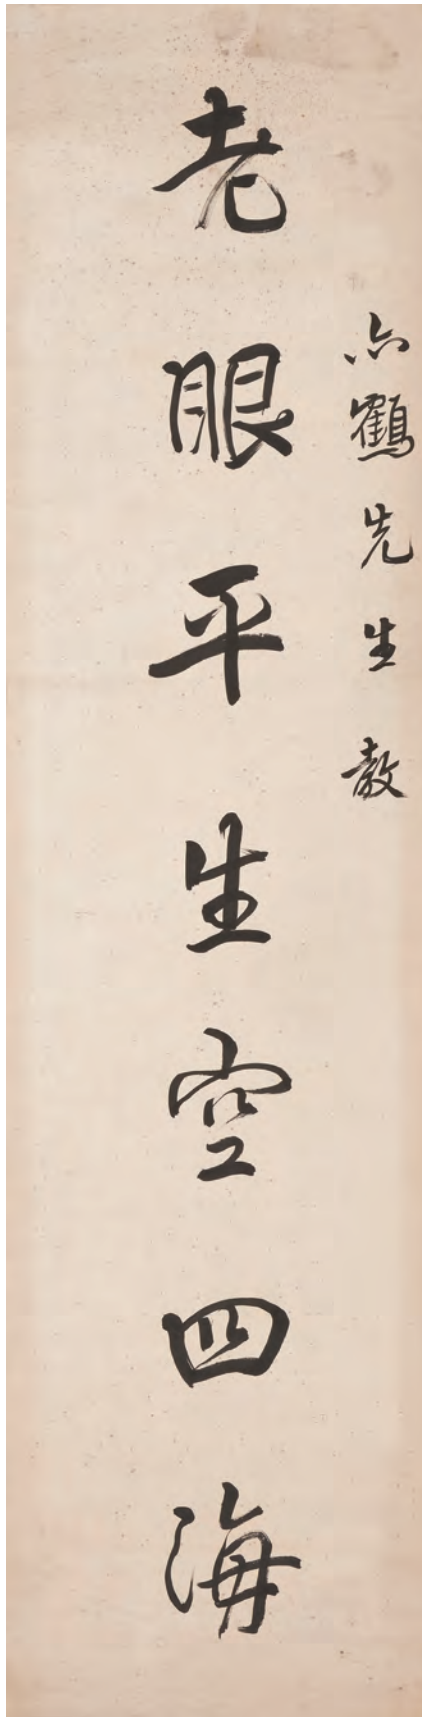 鶴先生教
老眼平生空四海